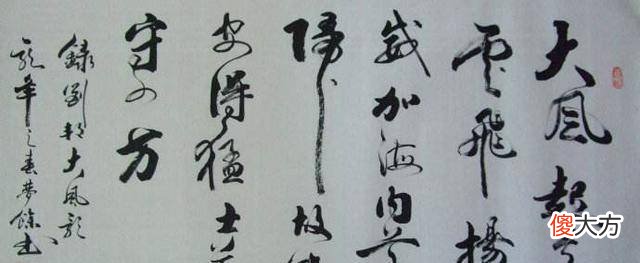 大風起兮
雲飛揚
威加海内兮
歸故
安得猛士兮
守四方
錄劉邦大風歌
龍年之春夢餘书
傻大方